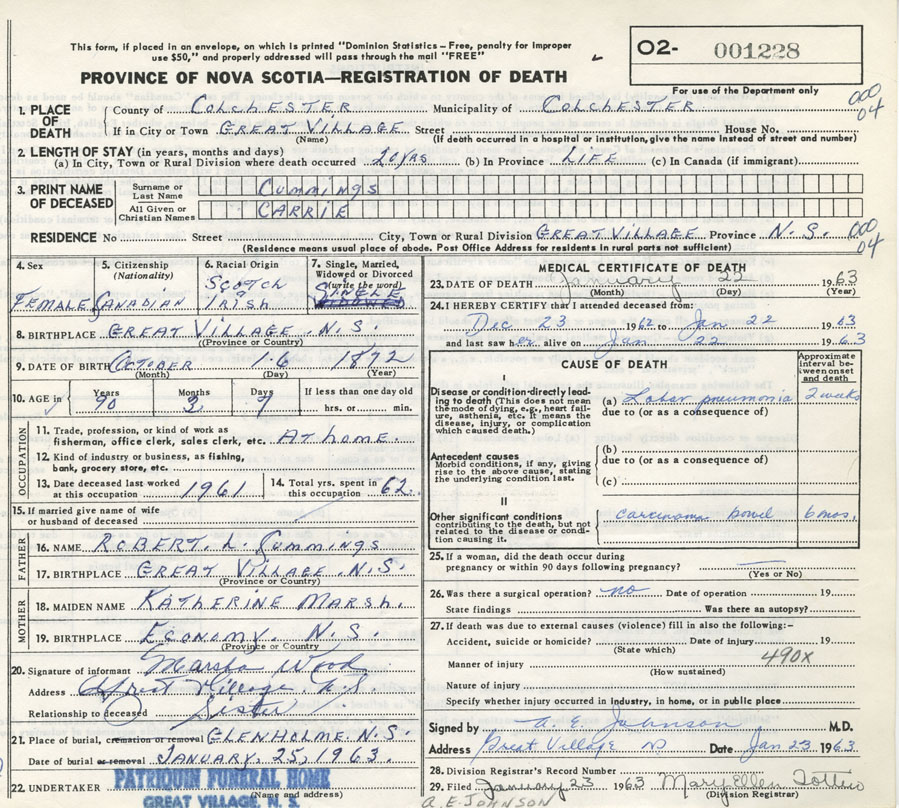 This form, if placed in an envelope, on which is printed "Dominion Statistics – Free, penalty for improper
use $50," and properly addressed will pass through the mail "FREE"
O2- 001228
For use of the Department only
PROVINCE OF NOVA SCOTIA—REGISTRATION OF DEATH
1. PLACE OF DEATH
County of COLCHESTER Municipality of COLCHESTER 000
If in City or Town GREAT VILLAGE Street House No. 04
(Name) (If death occurred in a hospital or institution, give the name instead of street and number)
2. LENGTH OF STAY (in years, months and days)
(a) In City, Town or Rural Division where death occurred 20 yrs (b) In Province LIFE (c) In Canada (if immigrant)
3. PRINT NAME OF DECEASED
Surname or Last Name Cummings
All Given or Christian Names CARRIE
RESIDENCE No Street City, Town or Rural Division GREAT VILLAGE Province N.S. 000
04
(Residence means usual place of abode. Post Office Address for residents in rural parts not sufficient)
4. Sex
FEMALE
5. Citizenship
(Nationality)
CANADIAN
6. Racial Origin
SCOTCH
IRISH
7. Single, Married,
Widowed or Divorced
(write the word)
SINGLE
8. BIRTHPLACE GREAT VILLAGE N.S.
(Province or Country)
9. DATE OF BIRTH OCTOBER 16 1872
(Month) (Day) (Year)
10. AGE in Years Months Days If less than one day old
90 3 7 hrs. or min.
OCCUPATION
11. Trade, profession, or kind of work as
fisherman, office clerk, sales clerk, etc. AT HOME.
12. Kind of industry or business, as fishing,
bank, grocery store, etc.
13. Date deceased last worked
at this occupation 1961
14. Total yrs. spent in
this occupation 62
15. If married give name of wife
or husband of deceased
FATHER
16. NAME ROBERT. L. Cummings
17. BIRTHPLACE GREAT VILLAGE .N.S.
(Province or Country)
MOTHER
18. MAIDEN NAME KATHERINE MARSH.
19. BIRTHPLACE ECONOMY. N.S.
(Province or Country)
20. Signature of informant Marsha Wood
Address Great Village. N.S.
Relationship to deceased Sister
21. Place of burial, cremation or removal GLENHOLME N.S.
Date of burial or removal JANUARY. 25, 1963.
22. UNDERTAKER PATRIQUIN FUNERAL HOME
(Name and address)
GREAT VILLAGE, N. S.
MEDICAL CERTIFICATE OF DEATH
23. DATE OF DEATH January 22 1963
(Month) (Day) (Year)
24. I HEREBY CERTIFY that I attended deceased from:
Dec 23 1962 to Jan 22 1963
and last saw her alive on Jan 22 1963
CAUSE OF DEATH
Approximate
interval between
onset
and death
I
Disease or condition directly leading
to death (This does not mean
the mode of dying, e.g., heart failure,
asthenia, etc. It means the
disease, injury, or complication
which caused death.)
(a) Lobar pneumonia 2 weeks
due to (or as a consequence of)
Antecedent causes
Morbid conditions, if any, giving
rise to the above cause, stating
the underlying condition last.
(b)
due to (or as a consequence of)
(c)
II
Other significant conditions
contributing to the death, but not
related to the disease or condition
causing it.
carcinoma bowel 6 mos.
25. If a woman, did the death occur during
pregnancy or within 90 days following pregnancy?
(Yes or No)
26. Was there a surgical operation? no Date of operation 19
State findings Was there an autopsy?
27. If death was due to external causes (violence) fill in also the following:–
Accident, suicide or homicide? Date of injury 19
(State which)
490X
Manner of injury
(How sustained)
Nature of injury
Specify whether injury occurred in industry, in home, or in public place
Signed by A. E. Johnson M.D.
Address Great Village NS Date Jan 23 1963
28. Division Registrar's Record Number
29. Filed January 23 1963 Mary Ellen
(Division Registrar)
A.E. JOHNSON